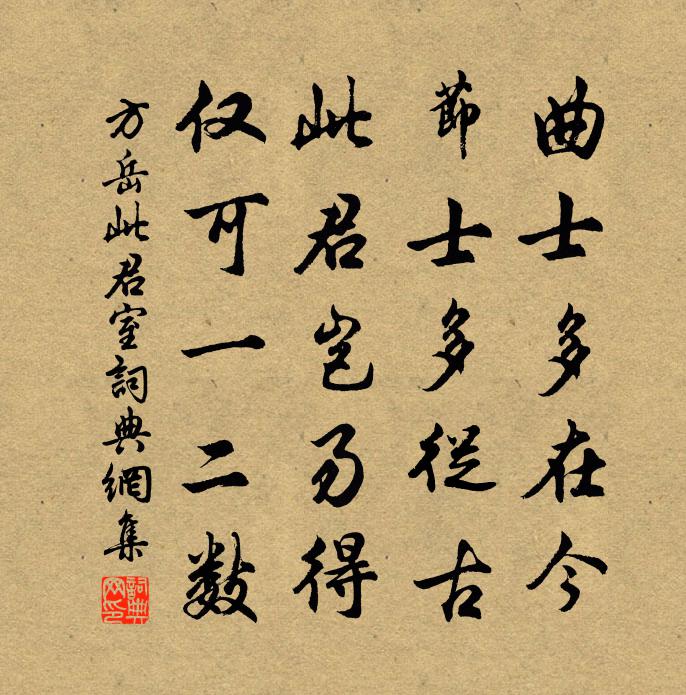 曲士多在今
節士多從古
此君岂易得
仅可一二数
方岳此君室詞典網集
詞典网印